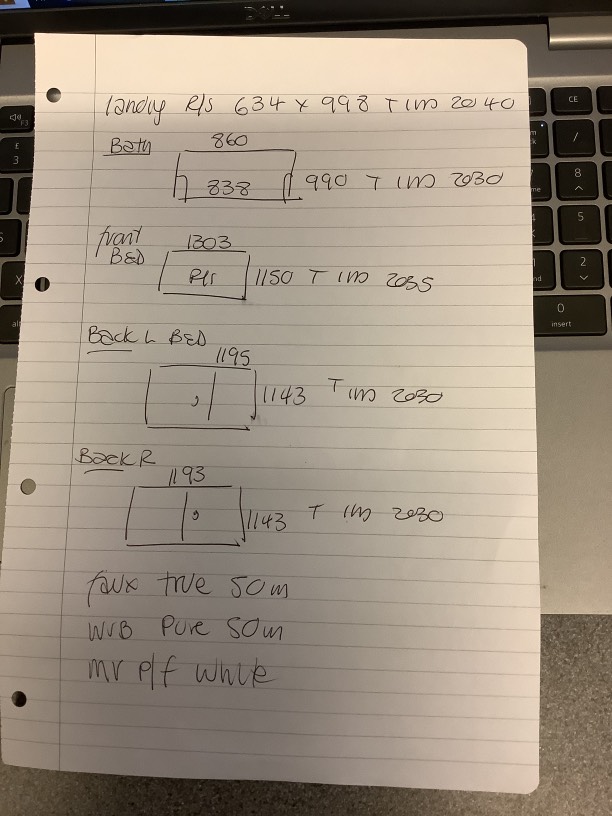 DELL
landing R/s 634 x 998 T IM 2040
Bath
860
838 990 T IM 2030
front BED
1303
R/s 1150 T IM 2035
Back L BED
1195
1143 T IM 2030
Back R
1193
1143 T IM 2030
faux true 50m
WVB Pure 50m
mr p/f white
F3
£
3
CE
/
8
5
2
0
insert